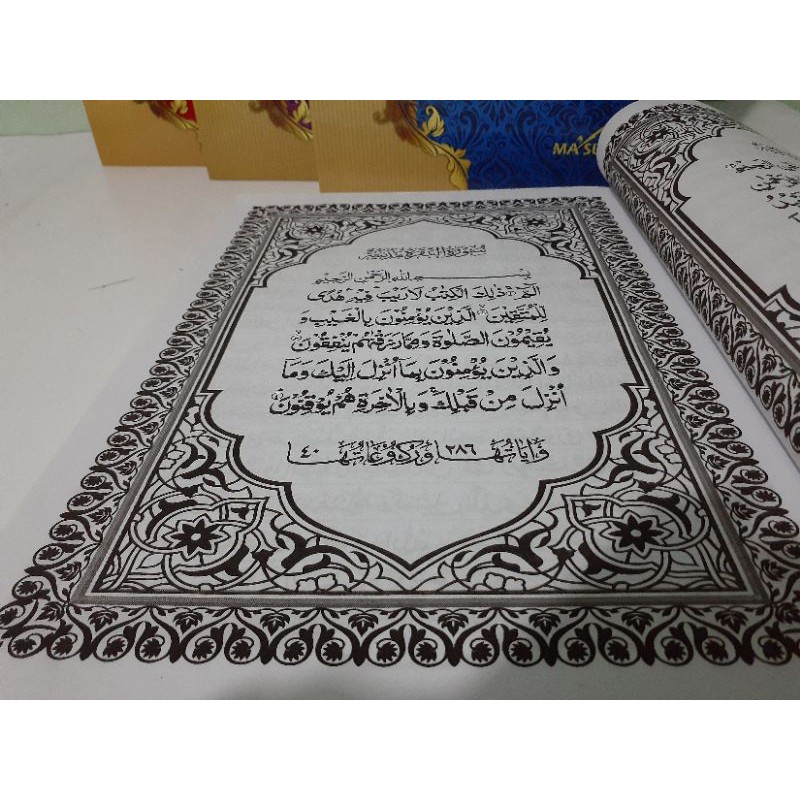 سُورَةُ الْبَقَرَةِ مَدَنِيَّةٌ
بِسْمِ اللهِ الرَّحْمٰنِ الرَّحِيْمِ
الٓمّٓ ۚ ذٰلِكَ الْكِتٰبُ لَا رَيْبَ فِيْهِ هُدًى
لِّلْمُتَّقِيْنَ ۙ الَّذِيْنَ يُؤْمِنُوْنَ بِالْغَيْبِ وَ
يُقِيْمُوْنَ الصَّلٰوةَ وَمِمَّا رَزَقْنٰهُمْ يُنْفِقُوْنَ ۙ
وَالَّذِيْنَ يُؤْمِنُوْنَ بِمَا أُنْزِلَ إِلَيْكَ وَمَا
أُنْزِلَ مِنْ قَبْلِكَ ۚ وَبِالْاٰخِرَةِ هُمْ يُوْقِنُوْنَ
وَاٰيَاتُهَا ٢٨٦ وَرُكُوْعَاتُهَا ٤٠